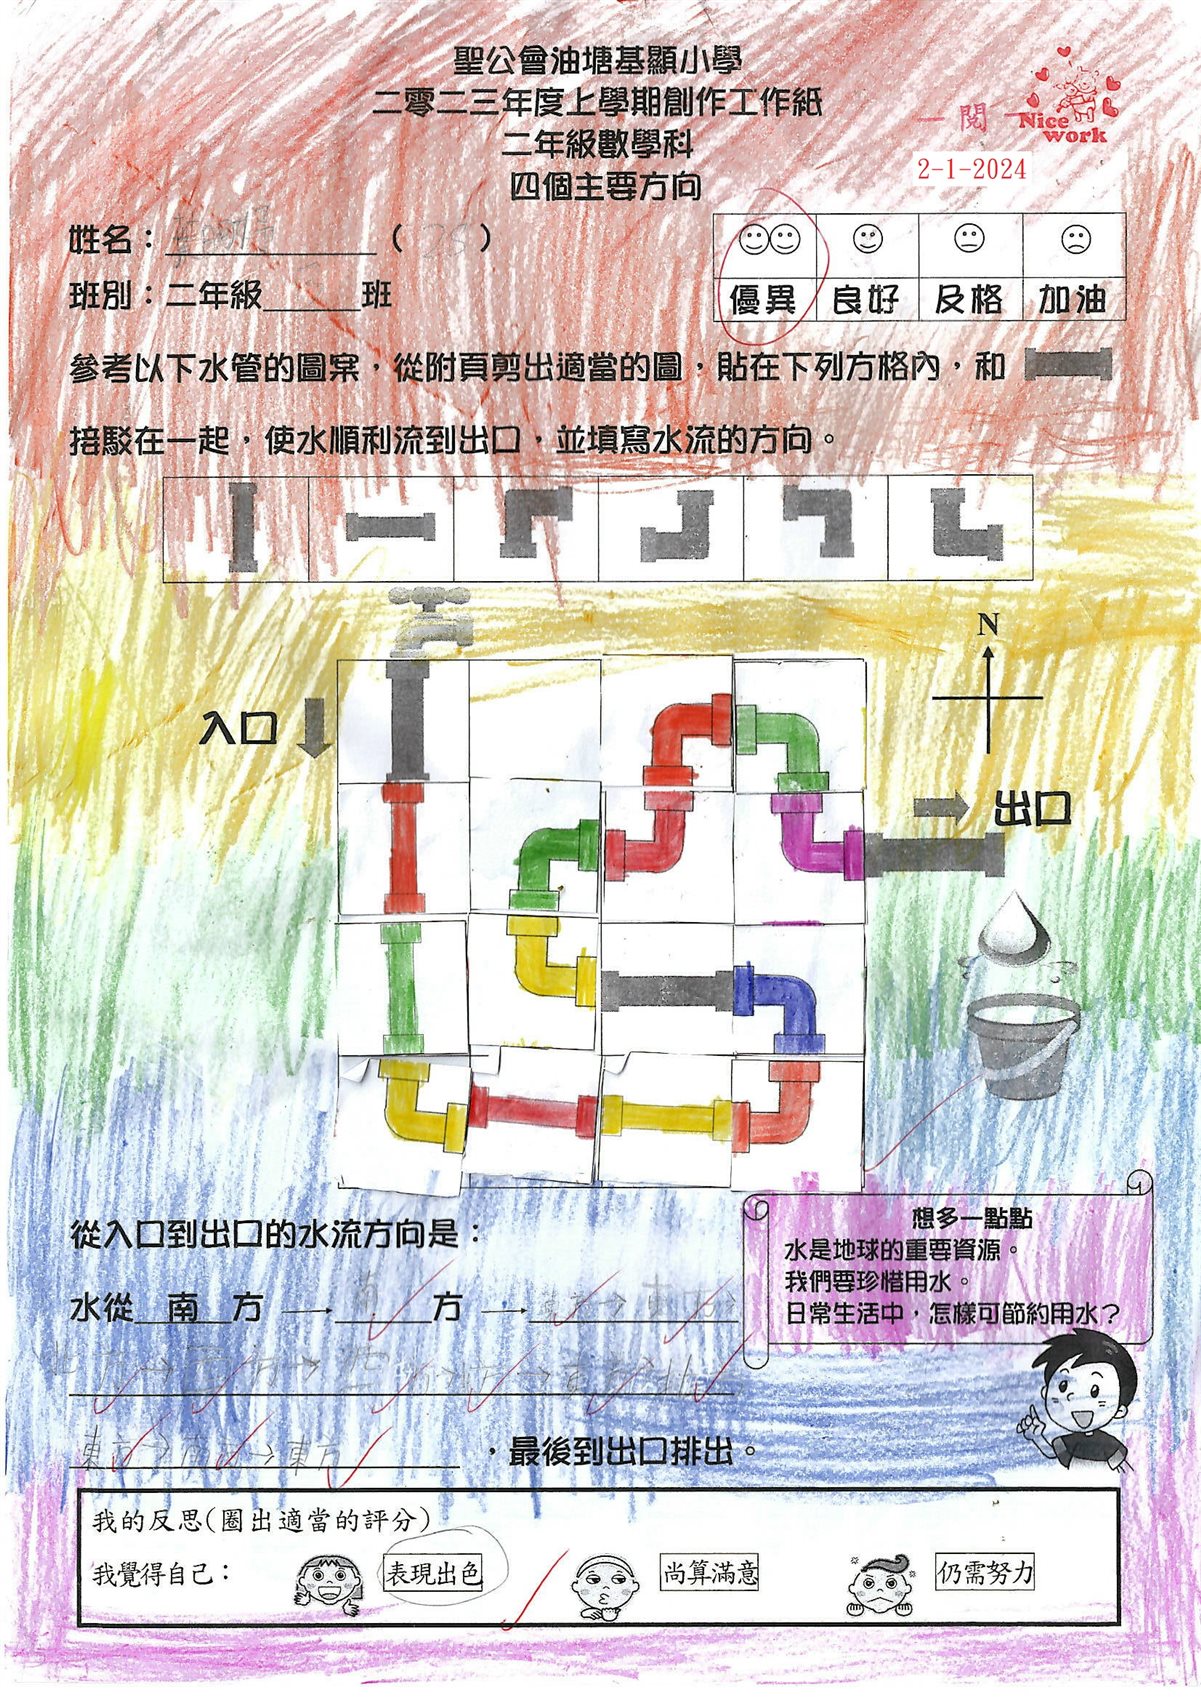 聖公會油塘基顯小學
二零二三年度上學期創作工作紙
二年級數學科
四個主要方向
一閱
Nice work
2-1-2024
姓名： （ 25 ）
班別：二年級______班
優異 良好 及格 加油
參考以下水管的圖案，從附頁剪出適當的圖，貼在下列方格內，和
接駁在一起，使水順利流到出口，並填寫水流的方向。
N
入口
出口
從入口到出口的水流方向是：
水從 南 方 → 南 方 → 東方→
方→ 方→
東方→南方→東方 ，最後到出口排出。
想多一點點
水是地球的重要資源。
我們要珍惜用水。
日常生活中，怎樣可節約用水？
我的反思(圈出適當的評分)
我覺得自己： 表現出色 尚算滿意 仍需努力